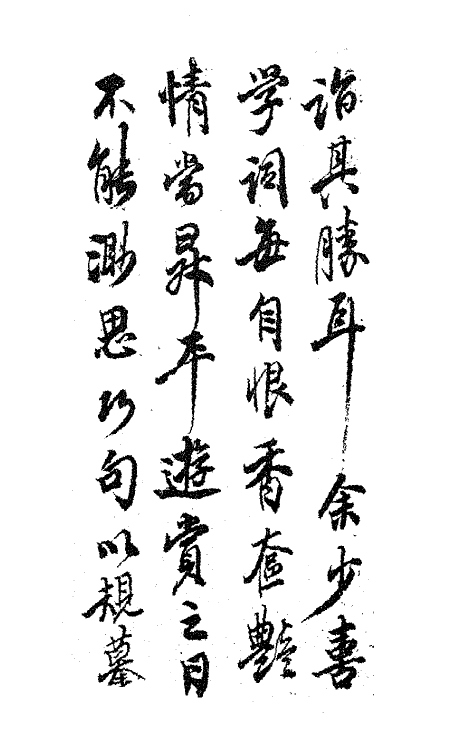 詣其勝耳余少喜
学詞每自恨香奩艷
情當昇平遊賞之日
不能渺思巧句以規摹